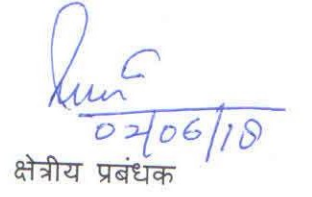 02/06/18
क्षेत्रीय प्रबंधक